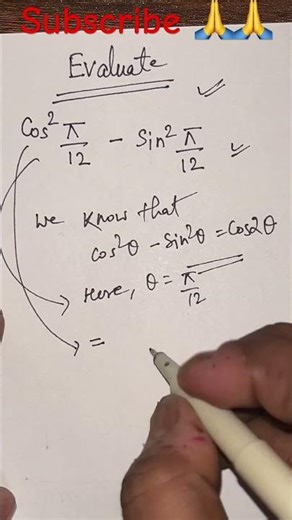 Subscribe 🙏🙏
Evaluate
Cos² π/12 - Sin² π/12
We know that
Cos²θ - Sin²θ = Cos2θ
Here, θ = π/12
=